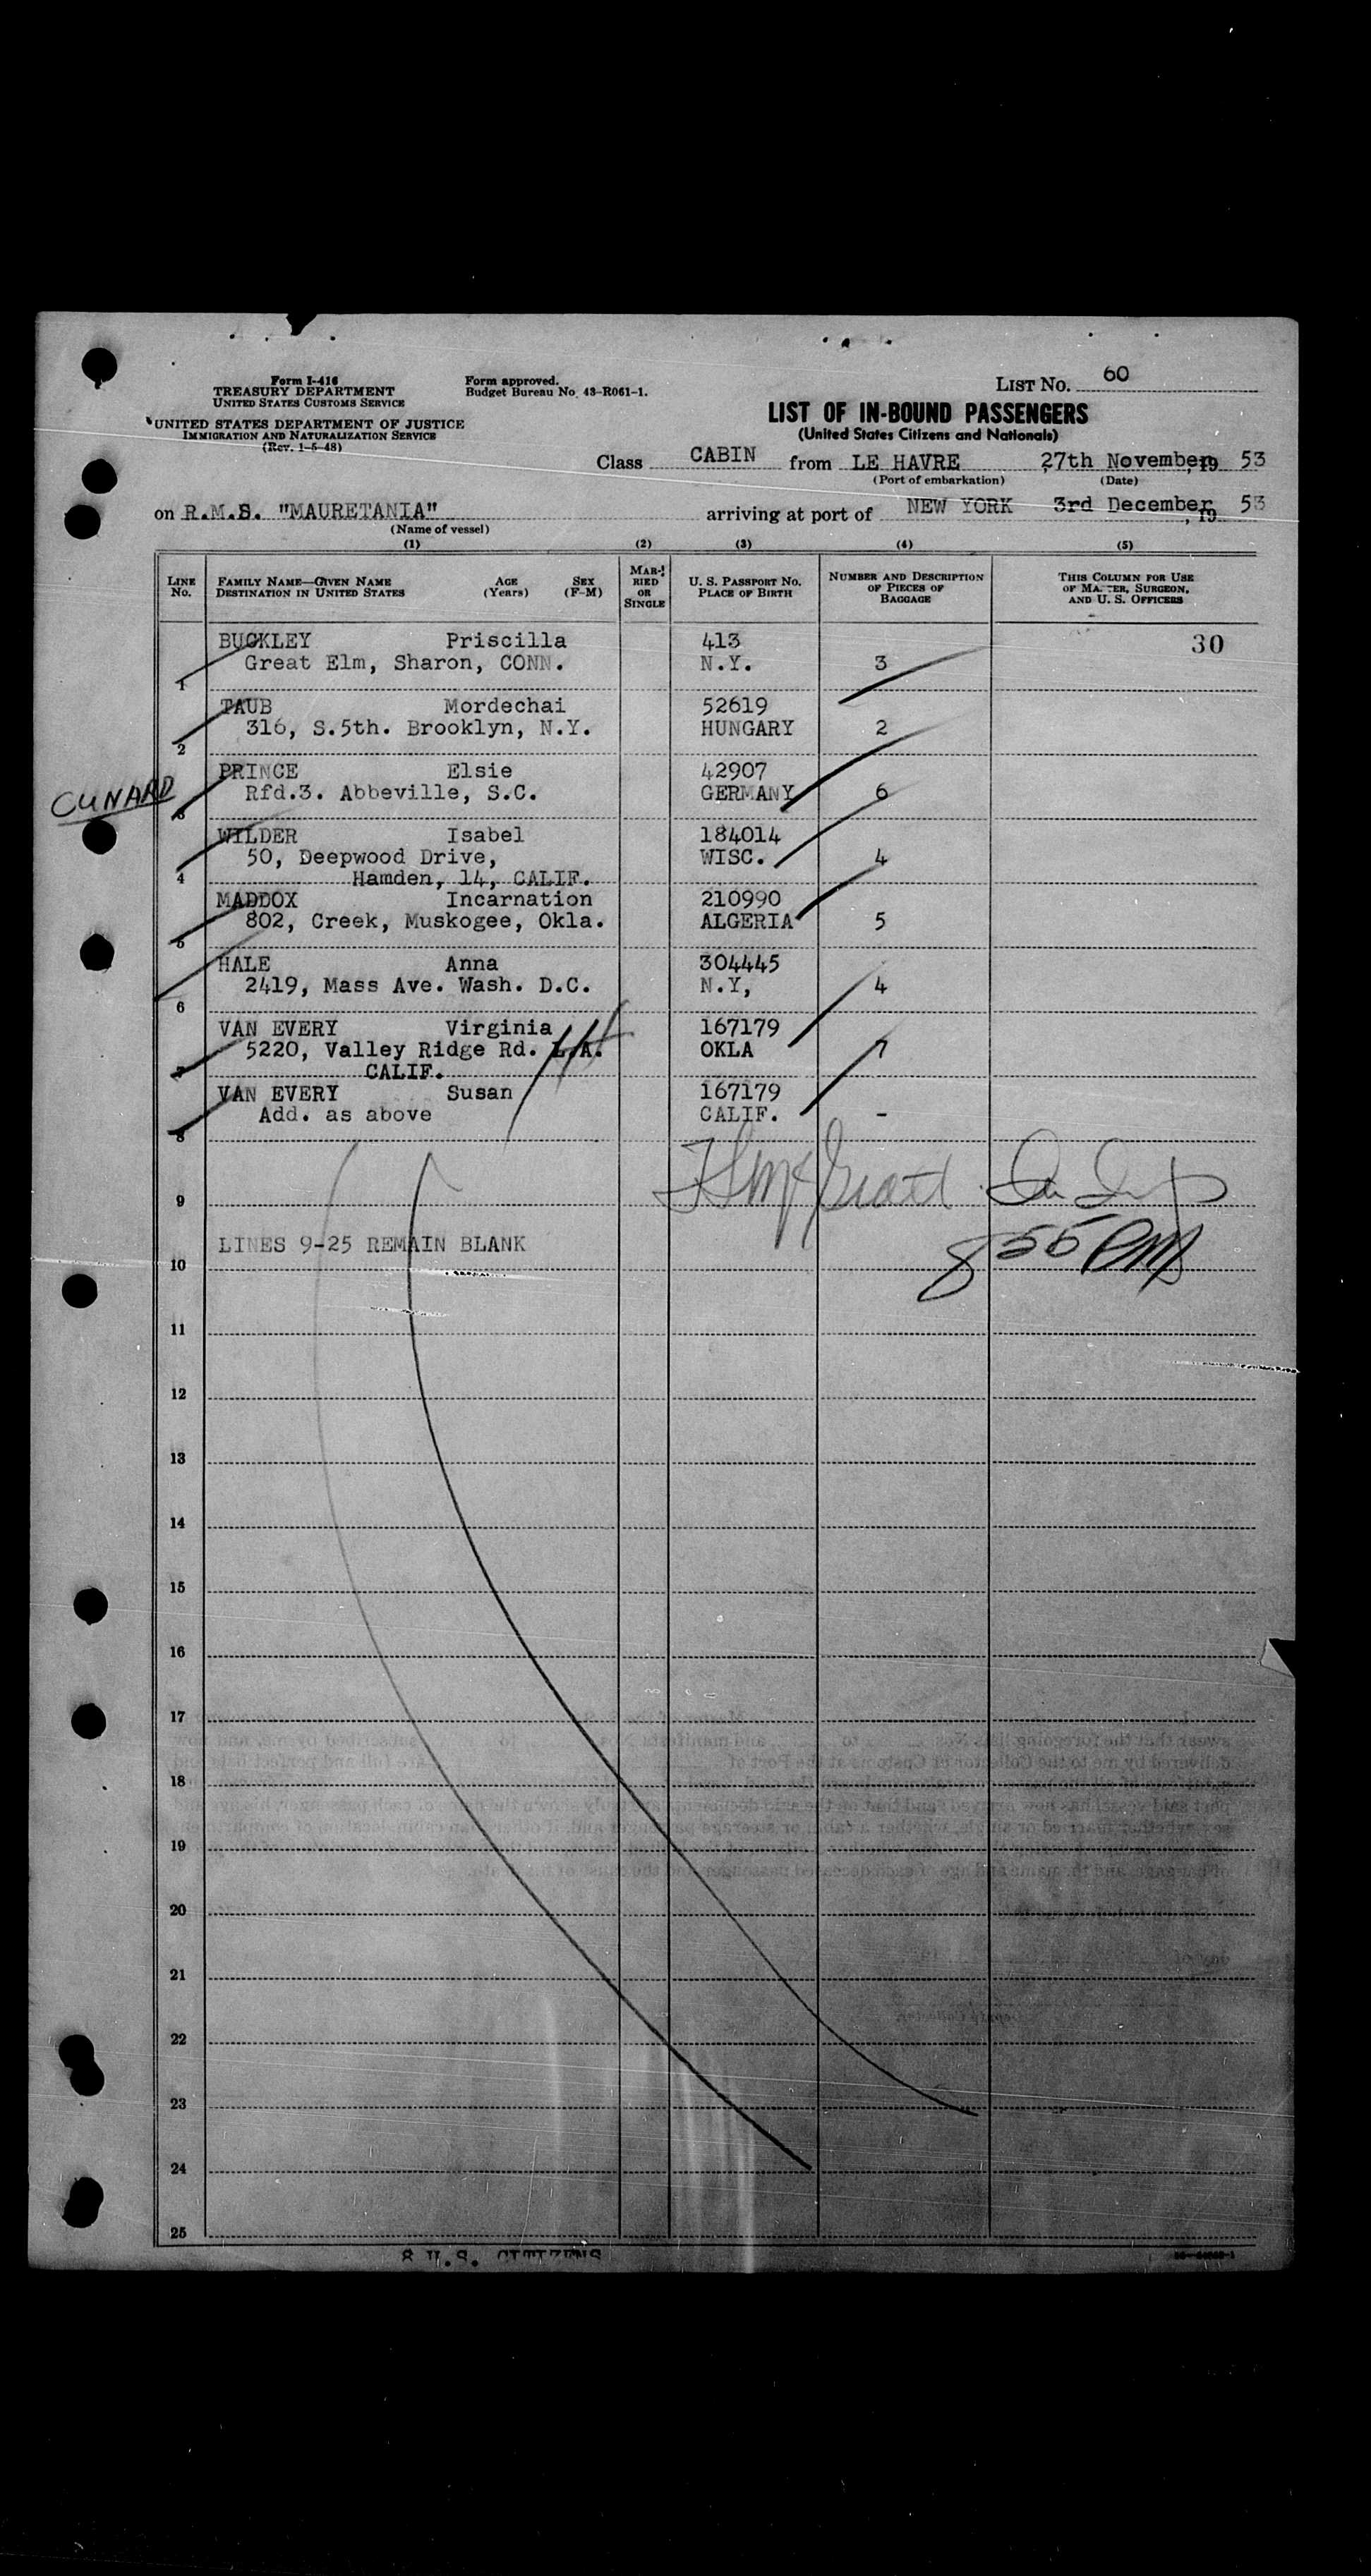 Form I-416
TREASURY DEPARTMENT
UNITED STATES CUSTOMS SERVICE
UNITED STATES DEPARTMENT OF JUSTICE
IMMIGRATION AND NATURALIZATION SERVICE
(Rev. 1-5-48)
Form approved.
Budget Bureau No. 43-R061-1.
LIST NO. 60
LIST OF IN-BOUND PASSENGERS
(United States Citizens and Nationals)
Class CABIN from LE HAVRE 27th November, 19 53
(Port of embarkation) (Date)
on R.M.S. "MAURETANIA" arriving at port of NEW YORK 3rd December, 19 53
(Name of vessel)
(1) (2) (3) (4) (5)
LINE NO. FAMILY NAME—GIVEN NAME DESTINATION IN UNITED STATES AGE (Years) SEX (F-M) MARRIED OR SINGLE U. S. PASSPORT NO. PLACE OF BIRTH NUMBER AND DESCRIPTION OF PIECES OF BAGGAGE THIS COLUMN FOR USE OF MASTER, SURGEON, AND U. S. OFFICERS
BUCKLEY Priscilla 413 30
Great Elm, Sharon, CONN. N.Y. 3
1
TAUB Mordechai 52619
316, S.5th. Brooklyn, N.Y. HUNGARY 2
2
PRINCE Elsie 42907
CUNARD Rfd.3. Abbeville, S.C. GERMANY 6
3
WILDER Isabel 184014
50, Deepwood Drive, WISC. 4
4 Hamden, 14, CALIF.
MADDOX Incarnation 210990
802, Creek, Muskogee, Okla. ALGERIA 5
5
HALE Anna 304445
2419, Mass Ave. Wash. D.C. N.Y, 4
6
VAN EVERY Virginia 167179
5220, Valley Ridge Rd. L.A. OKLA 7
7 CALIF.
VAN EVERY Susan 167179
Add. as above CALIF. -
8
9
855 PM
LINES 9-25 REMAIN BLANK
10
11
12
13
14
15
16
17
18
19
20
21
22
23
24
25
8 U.S. CITIZENS